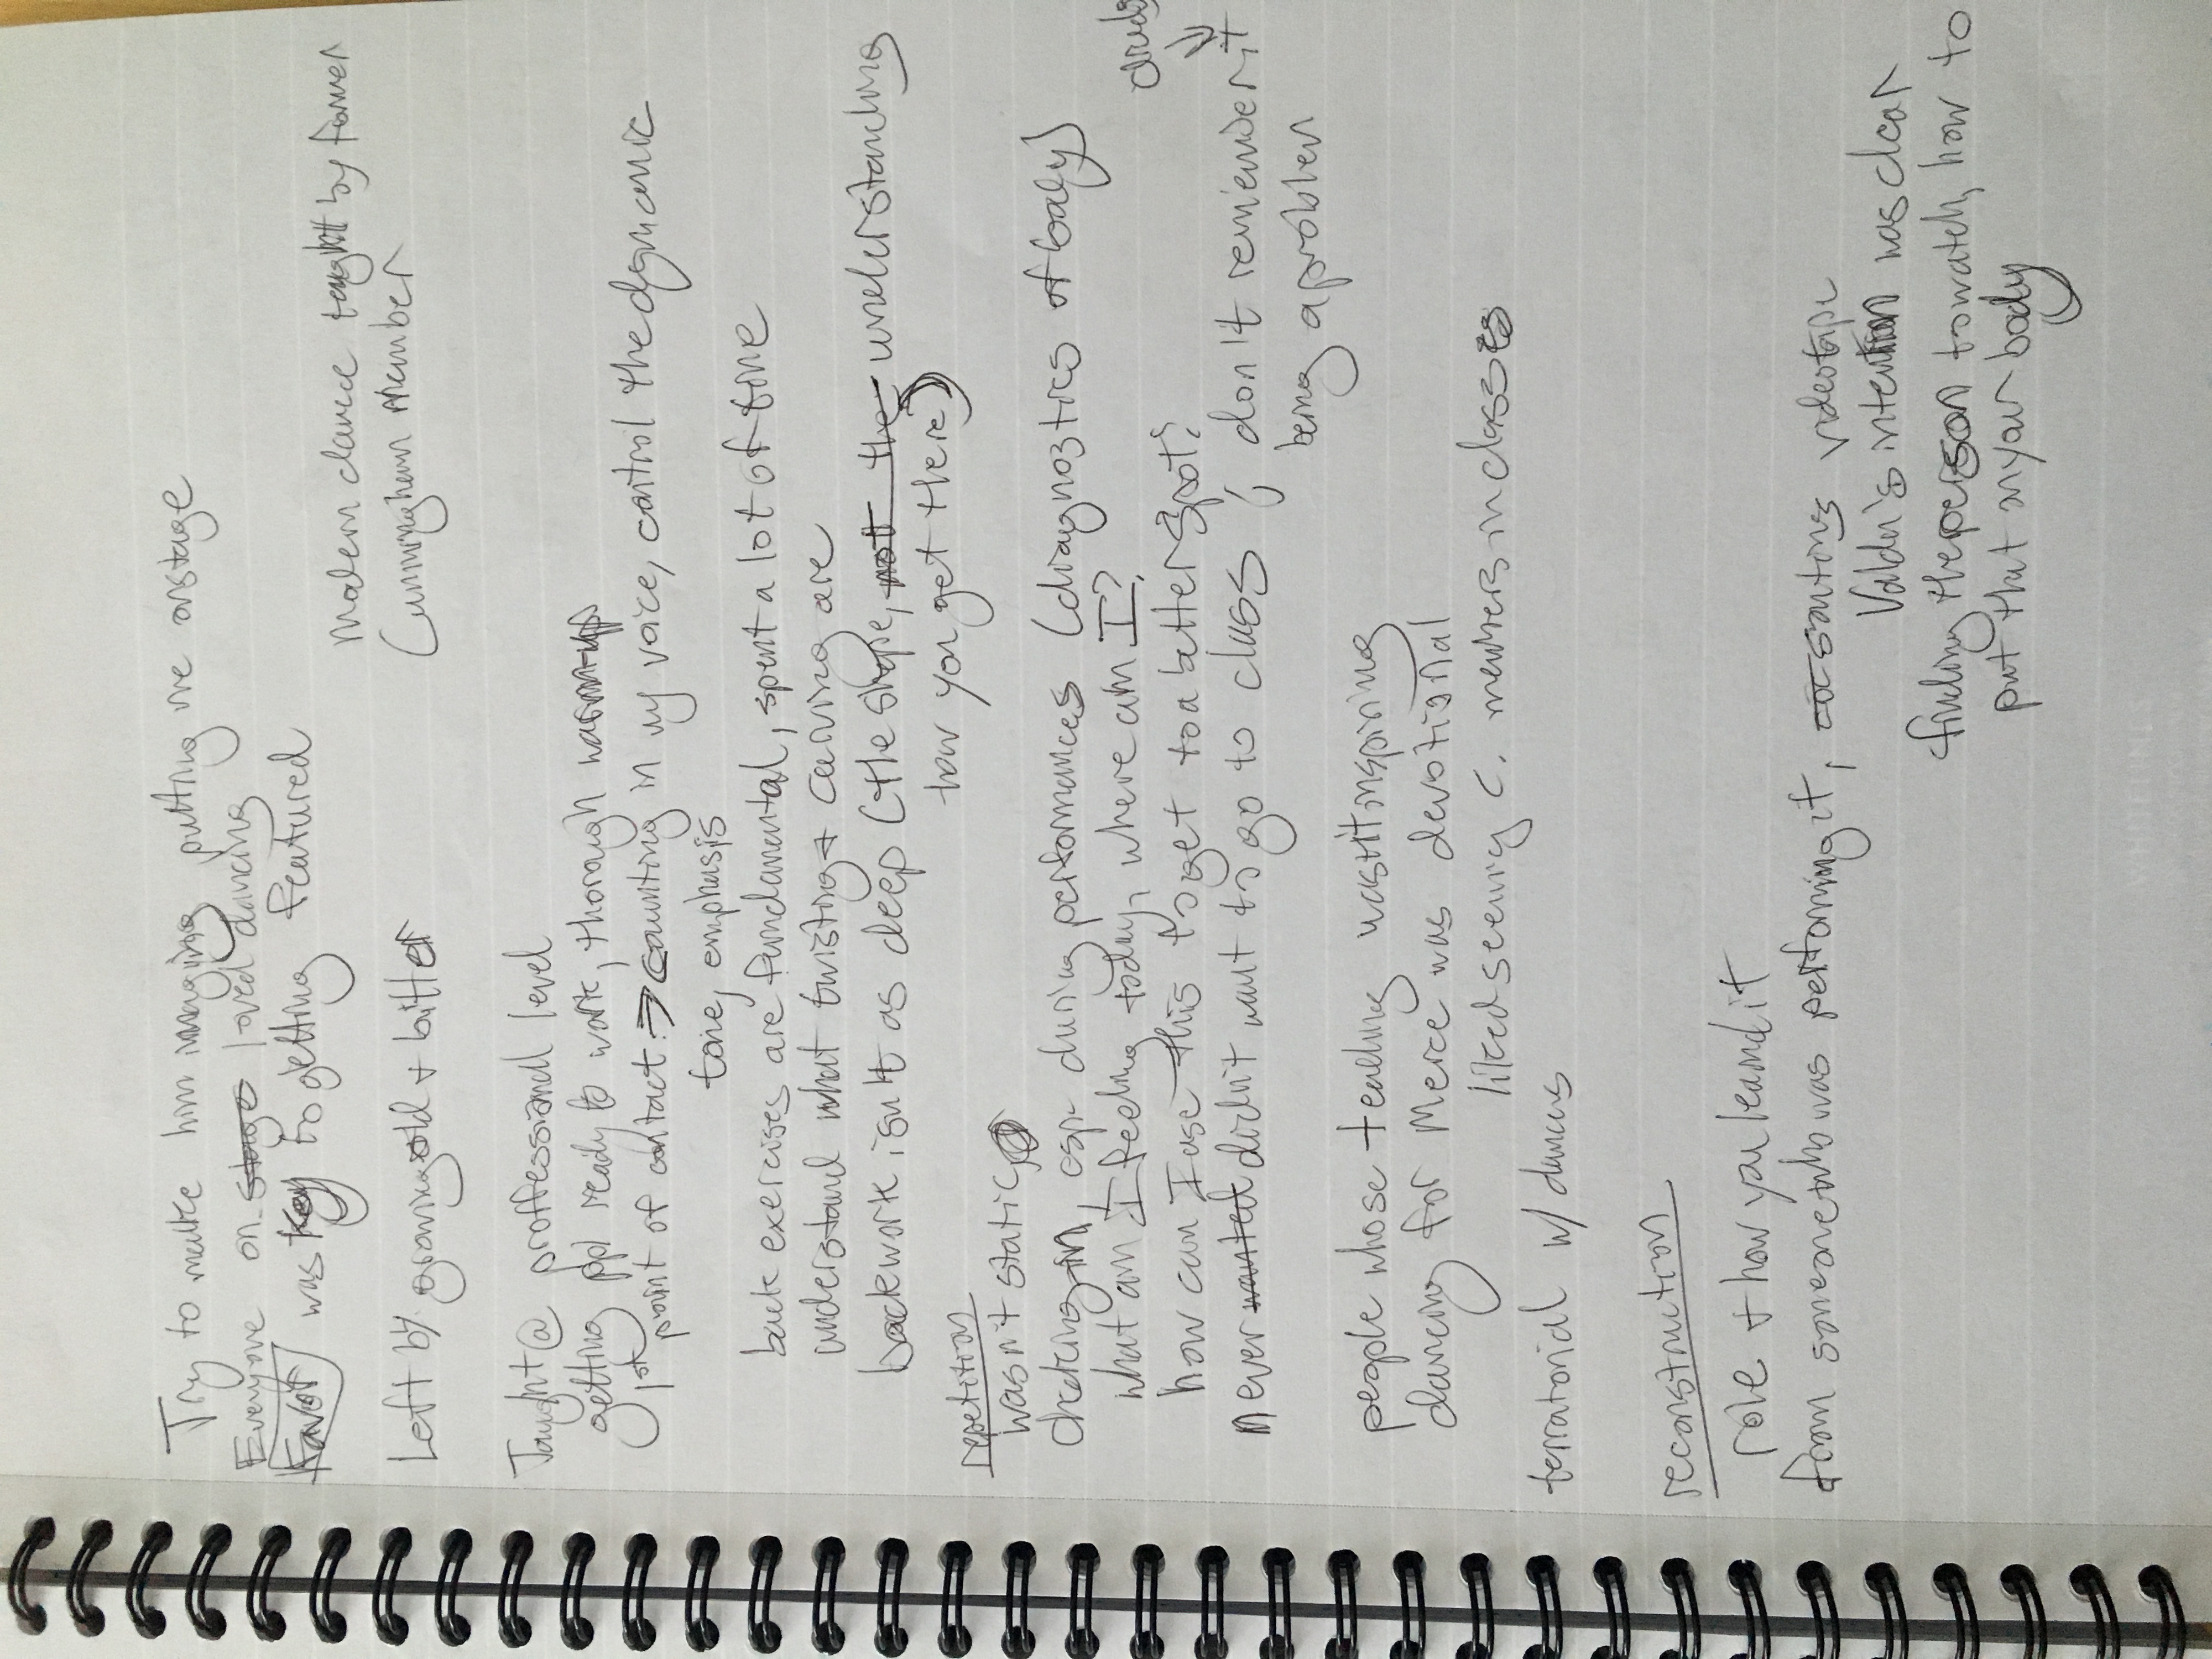 Try to make him imaging putting me onstage
Everyone on stage loved dancing
Favor was key to getting featured
Modern dance taught by former
Cunningham member
Left by growing old + bitter
Taught @ proffessional level
getting ppl ready to work, thorough warm-up
1st point of contact → counting in my voice, control the dynamic
tone, emphasis
back exercises are fundamental, spent a lot of time
understand what twisting + curving are
backwork isn't as deep (the shape, not the understanding
how you get there)
repetition
wasn't static
checking in, esp. during performances (diagnostics of body)
what am I feeling today, where am I?
how can I use this to get to a better spot?
never wanted didn't want to go to class, don't remember it
being a problem
people whose teaching was it inspiring
dancing for Merce was devotional
liked seeing C. members in classes
territorial w/ dances
reconstruction
role + how you learnd it
from someone who was performing it, sometimes videotape
Valda's intention was clear
finding the person to watch, how to
put that in your body